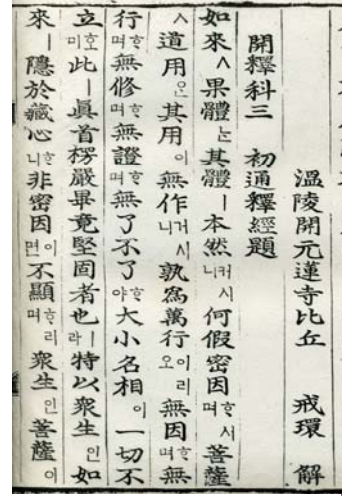 溫陵開元蓮寺比丘 戒環 解
開釋科三 初通釋經題
如來ㅅ果體는其體ㅣ本然커시니何假密因ᄒᆞ시며菩薩
ㅅ道用ᄋᆞᆫ其用이無作거시니孰爲萬行이리오無因ᄒᆞ며無
行ᄒᆞ며無修ᄒᆞ며無證ᄒᆞ며無了不了ᄒᆞ야大小名相이一切不
立호미此ㅣ眞首楞嚴畢竟堅固者也ㅣ라特以衆生인如
來ㅣ隱於藏心ᄒᆞ니非密因이면不顯ᄒᆞ리며衆生인菩薩이